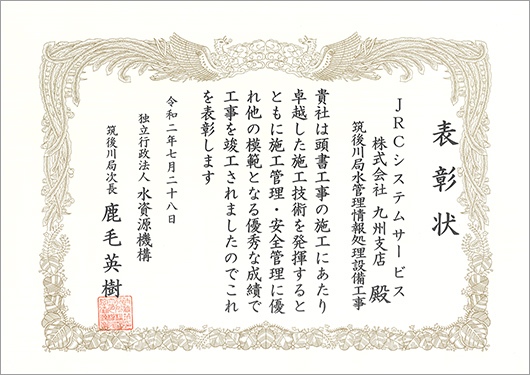 表彰状
JRCシステムサービス
株式会社 九州支店 殿
筑後川局水管理情報処理設備工事
貴社は頭書工事の施工にあたり
卓越した施工技術を発揮すると
ともに施工管理・安全管理に優
れ他の模範となる優秀な成績で
工事を竣工されましたのでこれ
を表彰します
令和二年七月二十八日
独立行政法人 水資源機構
筑後川局次長 鹿毛英樹